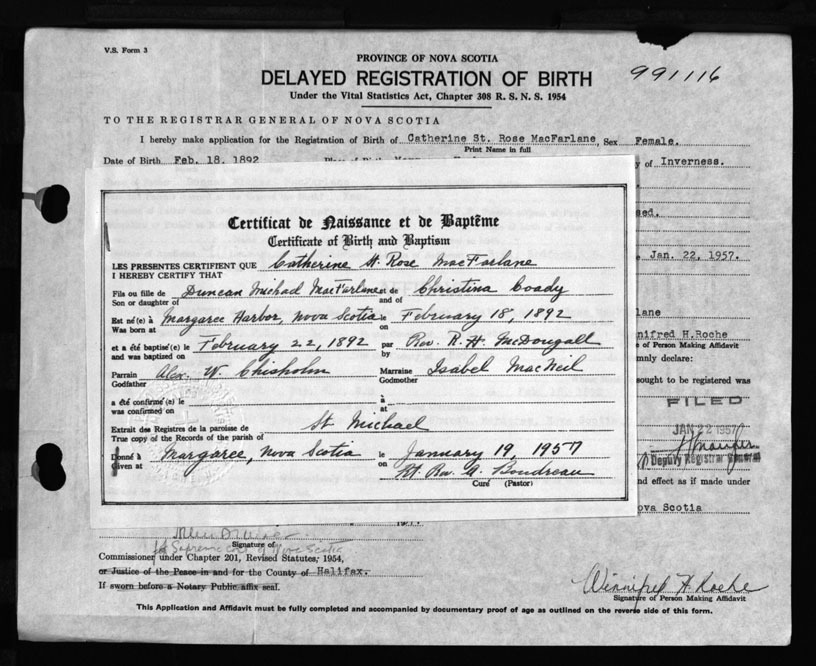 V.S. Form 3
PROVINCE OF NOVA SCOTIA
DELAYED REGISTRATION OF BIRTH
991116
Under the Vital Statistics Act, Chapter 308 R. S. N. S. 1954
TO THE REGISTRAR GENERAL OF NOVA SCOTIA
I hereby make application for the Registration of Birth of Catherine St. Rose MacFarlane, Sex Female.
Print Name in full
Date of Birth Feb. 18, 1892 y of Inverness.
sed.
Jan. 22, 1957.
lane
nifred H.Roche
of Person Making Affidavit
mnly declare:
sought to be registered was
FILED
JAN 22 1957
Deputy Registrar General
nd effect as if made under
ova Scotia
Certificat de Naissance et de Baptême
Certificate of Birth and Baptism
LES PRESENTES CERTIFIENT QUE Catherine St. Rose MacFarlane
I HEREBY CERTIFY THAT
Fils ou fille de Duncan Michael MacFarlane et de Christina Coady
Son or daughter of and of
Est né(e) à Margaree Harbor, Nova Scotia le February 18, 1892
Was born at on
et a été baptisé(e) le February 22, 1892 par Rev. R. H. McDougall
and was baptized on by
Parrain Alex. W. Chisholm Marraine Isabel MacNeil
Godfather Godmother
a été confirmé(e) le à
was confirmed on at
Extrait des Registres de la paroisse de St Michael
True copy of the Records of the parish of
Donné à Margaree, Nova Scotia le January 19, 1957
Given at on
Rt Rev. A. Boudreau
Curé (Pastor)
Signature of
Supreme Court of Nova Scotia
Commissioner under Chapter 201, Revised Statutes, 1954,
or Justice of the Peace in and for the County of Halifax.
If sworn before a Notary Public affix seal.
Winnifred H. Roche
Signature of Person Making Affidavit
This Application and Affidavit must be fully completed and accompanied by documentary proof of age as outlined on the reverse side of this form.